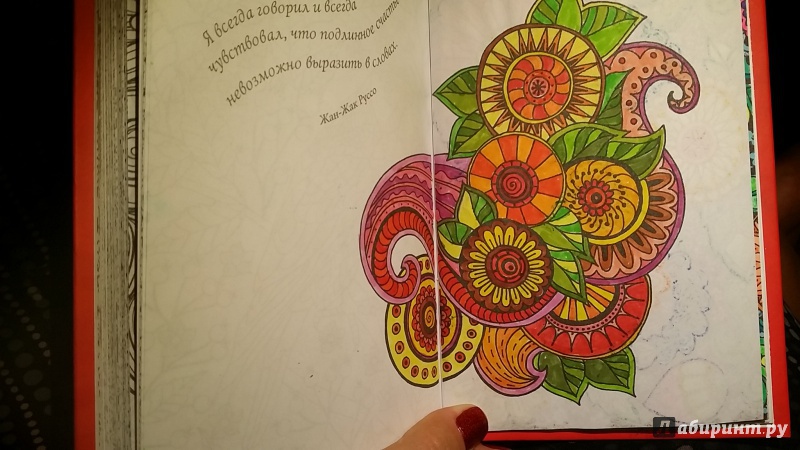 Я всегда говорил и всегда
чувствовал, что подлинное счастье
невозможно выразить в словах.
Жан-Жак Руссо
Лабиринт.ру